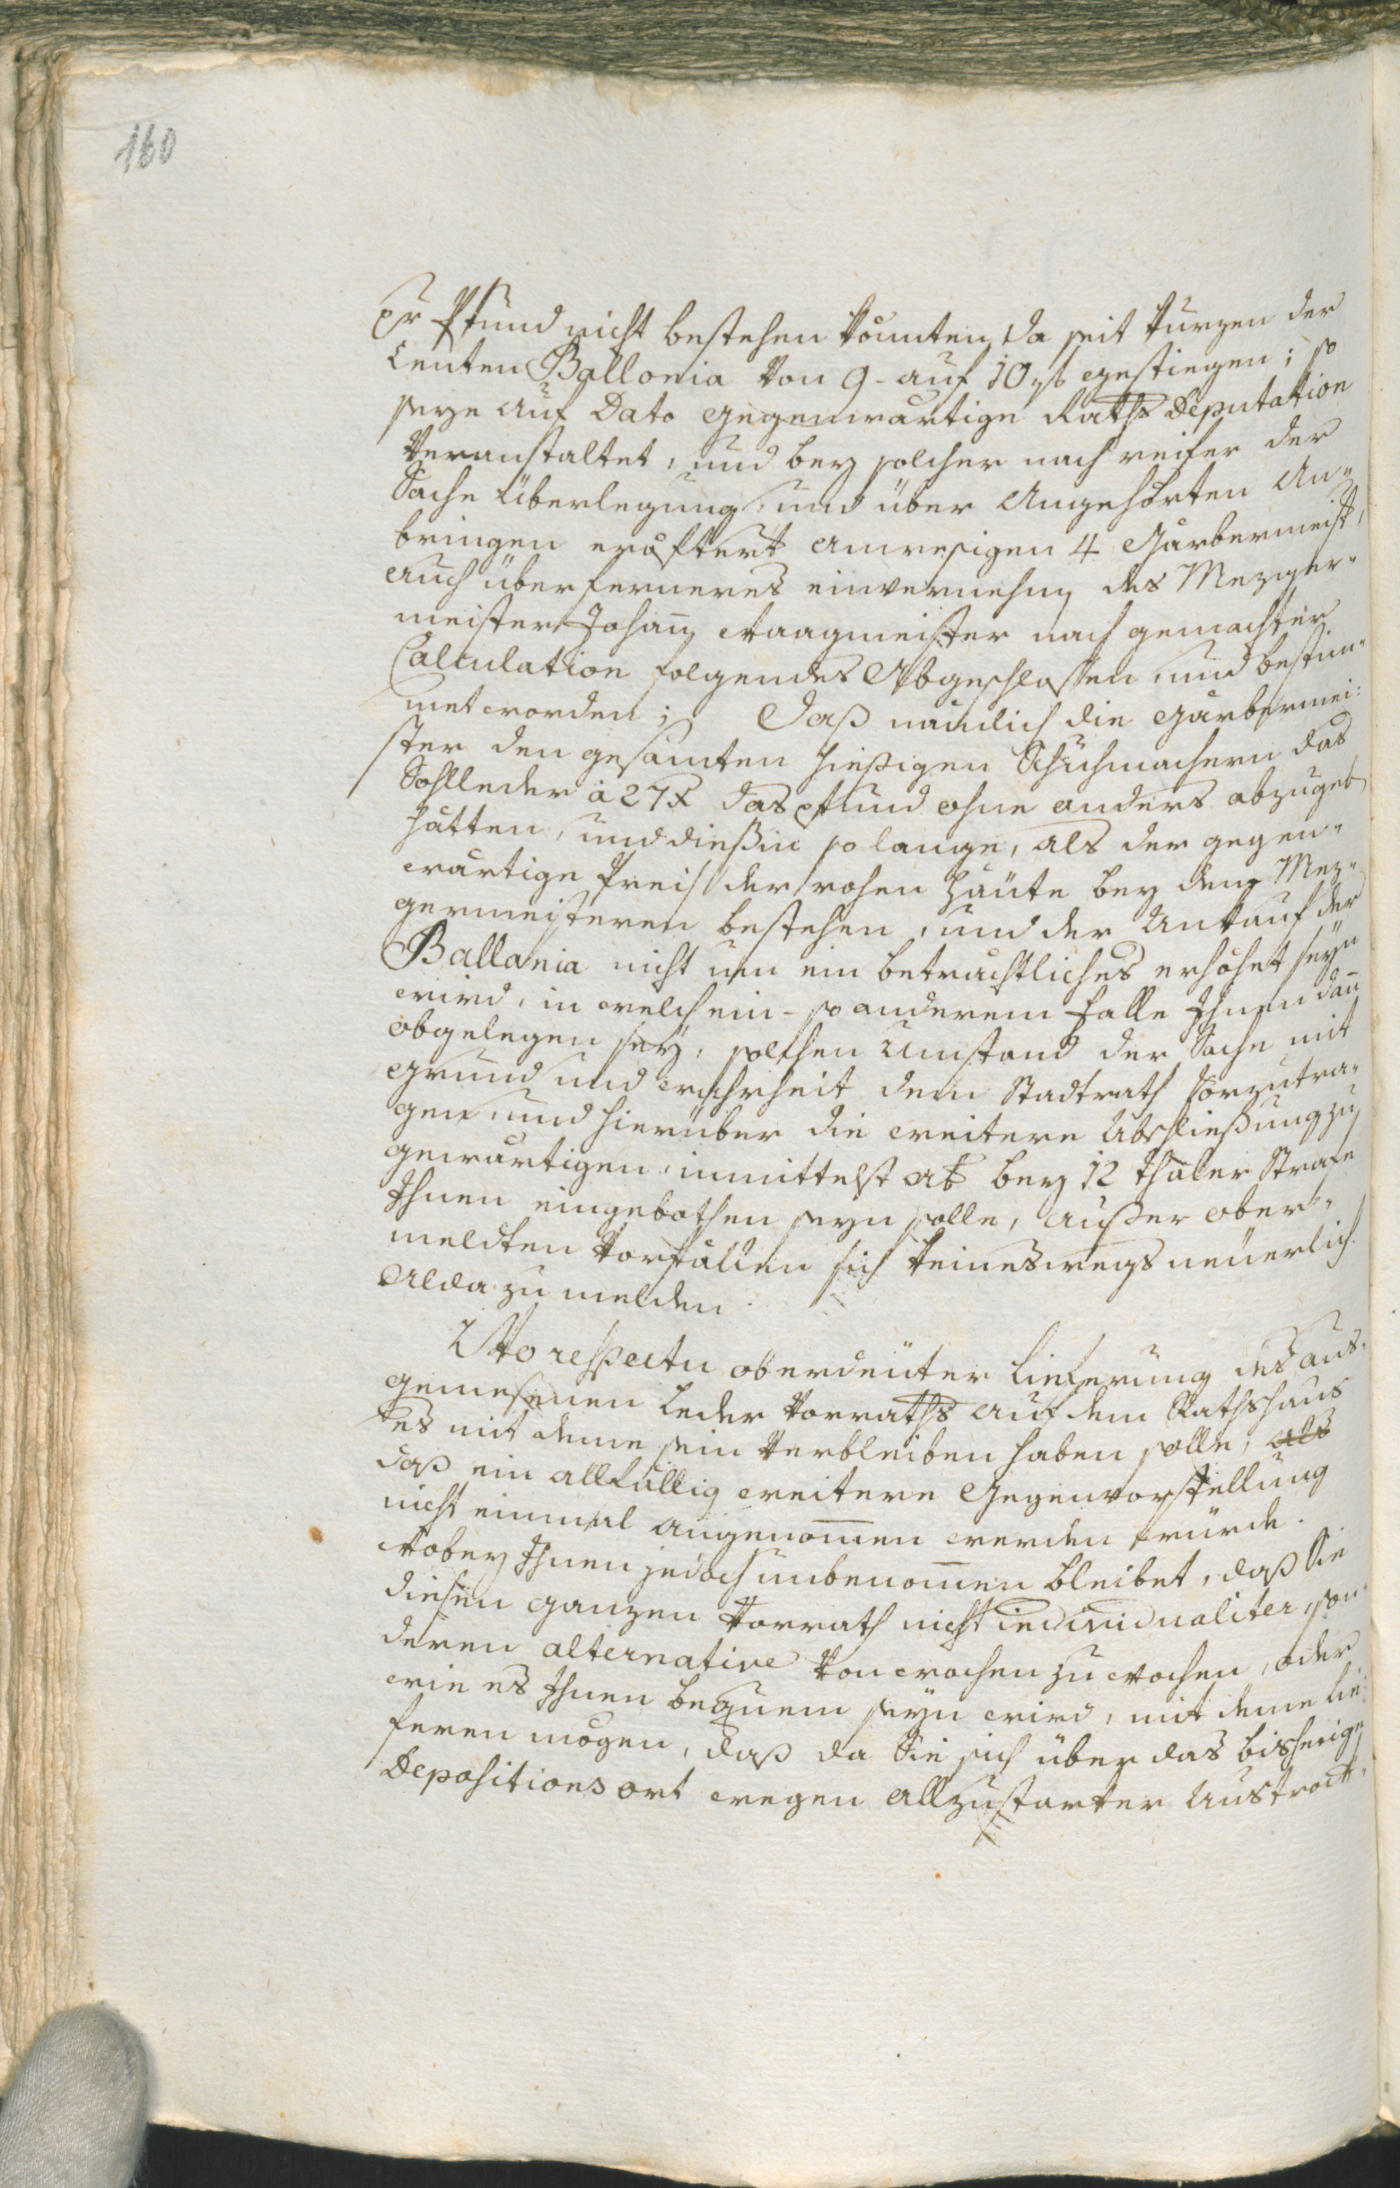 160
Er Pfund nicht bestehen könnten, da seit kurzen der
Centen Ballonia von 9 - auf 10 gestiegen; so
seye auf Dato gegenwärtige Raths Deputation
veranstaltet, und bey solcher nach reifer der
Sache Überlegung, und über Angehörten An-
bringen anwesigen 4 Gärbermeist,
auch über ferneres einvernehmg des Mezger-
meister Johann Waagmeister nach gemachter
Calculation folgendes Abgeschlossen, und bestim-
met worden; Daß nämlich die Gärbermei:
ster den gesamten hießigen Schuhmachern das
Sohlleder à 27 x das Pfund ohne anders abzugeb
hätten, und dießin so lange, als der gegen-
wärtige Preis der rohen Häüte bey den Mez-
germeisteren bestehen, und der Ankauf der
Ballania nicht um ein beträchtliches erhöhet seyn
wird, in welch ein - so anderem Falle Ihnen dann
obgelegen sey, solchen Umstand der Sache mit
Grund und Wahrheit dem Stadtrath vorzutra-
gen, und hierüber die weitere Abschließung zu
gewärtigen, inmittelst bey 12 Thaler Strafe
Ihnen eingebothen seyn solle, außer ober-
meldten Vorfällen sich keineswegs neüerlich
Alda zu melden.
respectu oberdeüter Lieferung des aus-
gemessenen Leder Vorraths auf dem Rathshaus
es mit deme sein Verbleiben haben solle, als
daß ein allfällig weitere Gegenvorstellung
nicht einmal angenommen werden würde.
Wobey Ihnen jedoch unbenommen bleibet, daß Sie
diesen ganzen Vorrath nicht individualiter, son-
deren alternative von Wochen zu Wochen, oder
wie es Ihnen bequem seyn wird, mit deme lie-
feren mögen, daß da Sie sich über das bisherige
Depositionsort wegen allzustarker Austrock-